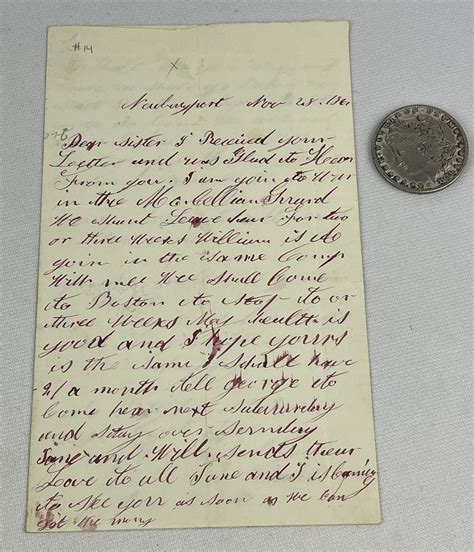 #14
X
Newburyport Nov 28. 186
Dear Sister I Received your
Letter and was Glad to Hear
From you. I am goin to War
in the McClellian Guard
We Shant Leave hear For two
or three Weeks William is to
goin in the Same Comp
With mee Wee Shall Come
to Boston to Stop to or
three Weeks May health is
good and I hope yours
is the Same I Shall have
21 a month tell george to
Come hear next Saturday
and Stay over Sunday
Jane and Will sends their
Love to all Jane and I is
to See you as Soon as We Can
got the mony